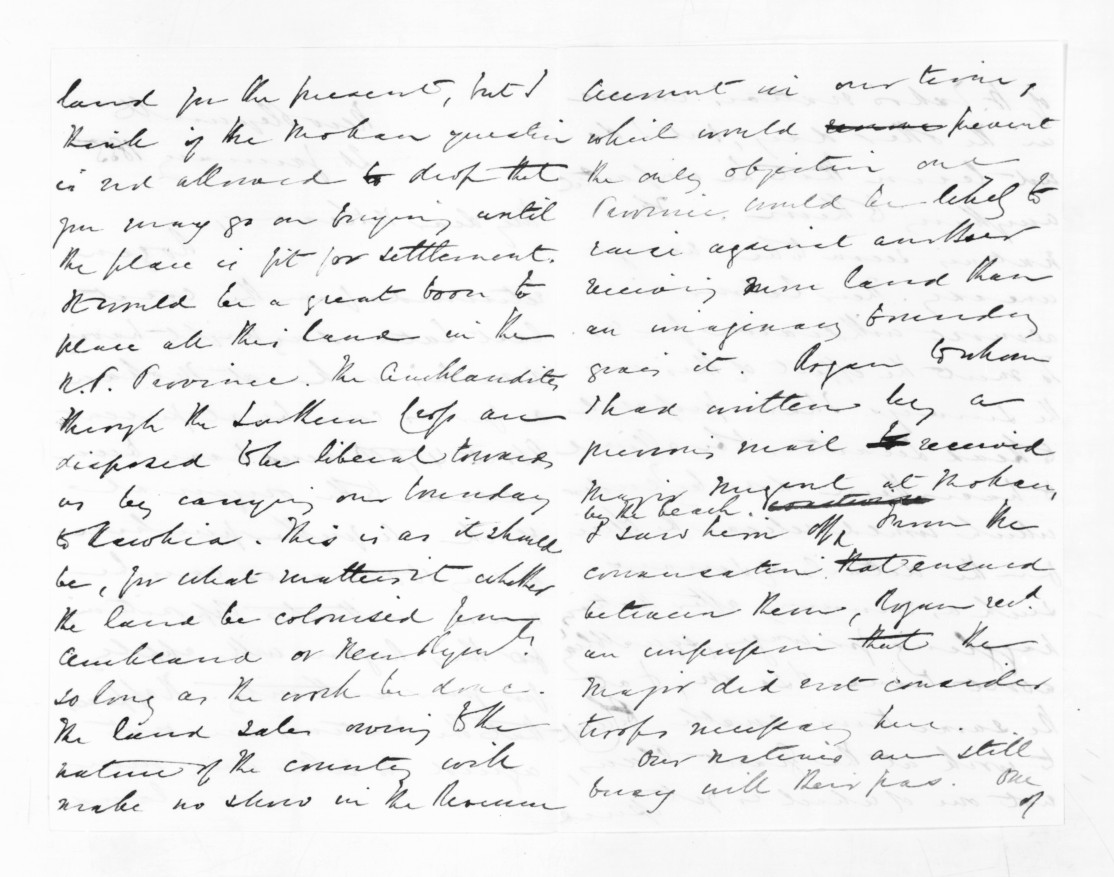 land for the present, but I
think if the Mokau question
is not allowed to drop that
you may go on buying until
the place is fit for settlement.
It would be a great boon to
place all this land in the
N.P. Province. The Aucklandites
through the Southern Cross are
disposed to be liberal towards
us by carrying our boundary
to Kawhia. This is as it should
be, for what matters it whether
the land be colonised from
Auckland or New Plymth.
so long as the work be done.
The land sales owing to the
nature of the country will
make no show in the Revenue
Account in our time,
which would prevent
the only objection one
Province would be likely to
raise against another
receiving more land than
an imaginary boundary
gives it. Rogan to whom
I had written by a
previous mail received
Major Nugent at Mokau,
by the beach.
I saw them off. From the
conversation that ensued
between them, Rogan recd.
an impression that the
Major did not consider
troops necessary here.
Our natives are still
busy with their pas. One
of